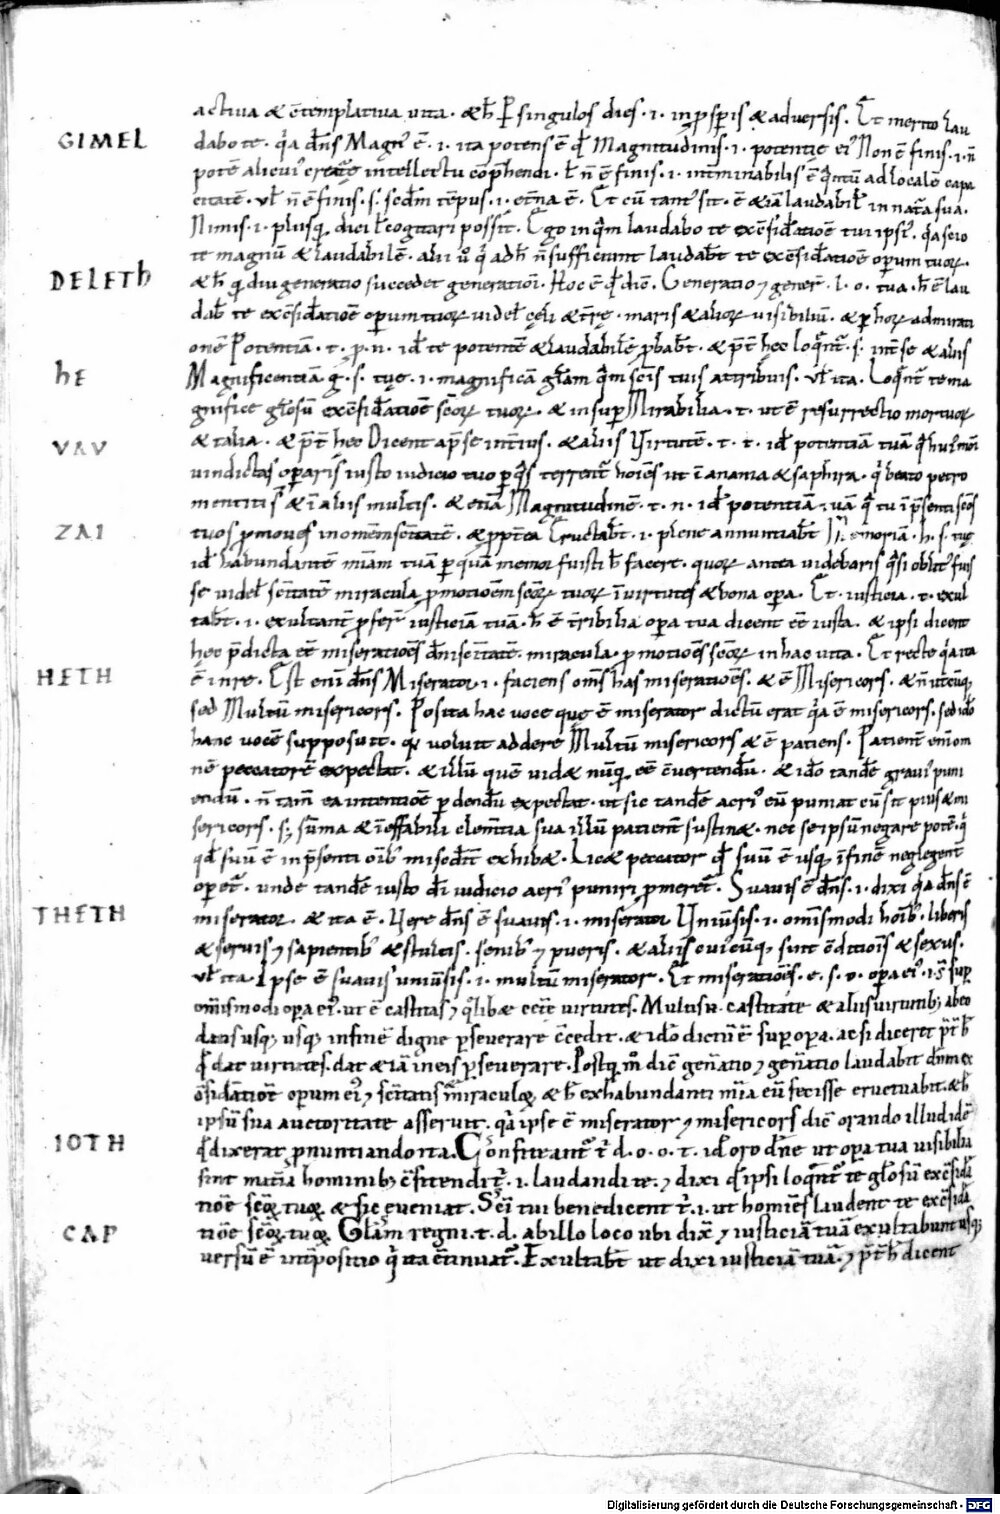 activa & c̄templativa vita · &h̄ P̱ singulos dies · i · in ꝓsꝑis & adversis. Et merito lau
GIMEL
dabo te · q̓a dn̄s Magn᾿ ē · i · ita potens ē qd̓ Magnitudinis · i · potentię ei᾿ Non ē finis · i · n̄
potē alicui᾿ creatę intellectu cōp̄hendi · ł n̄ ē finis · i · int̄minabilis ē
citatē · vł n̄ ē finis · s · tēpus · i · et̄na ē · Et cū tant᾿ sit · ē &iā laudabił in nat̄a sua ·
Nimis · i · plusq̄ dici ł cogitari possit · Ego in laudabo te tui ipsi᾿ · q̓a scio
te magnū & laudabilē · alii u᾿o q̓ adh̄ n̄ sufficiunt laudab̄t te oꝑum tuoꝝ ·
DELETH
&h̄ q̓ diu generatio succedet generationi · Hoc ē qd̓ dic̄ · Generatio ⁊ gener̄ · l · o · tua · h̄ ē lau
dab̄ te oꝑum tuoꝝ videł cęli & t̄rę · maris & alioꝝ visibiliū · & ꝑ hoꝝ admirati
onē Potentiā · t · p · n · id̄ te potentē & laudabilē ꝓbab̄t · & p̄t̄ hec loqn̄t᾿ · s · int̄ se & aliis
hE
Magnificentiā g · s · tuę · i · magnificā gł̄am sc̄is tuis attribuis · vł ita · Loqn̄t᾿ te ma
gnifice gło̅sū sc̄oꝝ tuoꝝ · & insuꝑ Mirabilia · t · ut ē resurrectio mortuoꝝ
VAV
& talia · & p̄t̄ hec Dicent ap̄ se int̄ius · & aliis Virtutē · t · t · id̄ potentiā tuā
vindictas oꝑaris iusto iudicio tuo ꝑ terrent᾿ hōies ut ī anania & saphira · q̓ beato petro
mentitis & ī aliis multis · & etiā Magnitudinē · t · n · id̄ potentiā tuā q̓ tu ī p̄senti sc̄os
ZAI
tuos ꝓmoves & ꝓpt̄ea Eructab̄t · i · plene annuntiab̄t Memoriā · h · s · tuę
id̄ habundantē mīam tuā ꝑ quā memor fuisti h̄ facere · quoꝝ antea videbaris q̓si oblit᾿ fuis
se videł miracula ꝓmotionem sc̄oꝝ tuoꝝ ī virtutes & bona oꝑa · Et · iusticia · t · exul
tab̄t · i · exultant᾿ ꝓfer̄ iusticiā tuā · h̄ ē t̄ribilia oꝑa tua dicent ēē iusta · & ipsi dicent
hec p̄dicta ēē miserationēs miracula · ꝓmotionēs sc̄oꝝ in hac vita · Et recte q̓a ita
HETH
ē in re · Est eni᾿ dn̄s Miserator · i · faciens om̄s has miserationēs · & ē Misericors ·
sed Multū misericors · Posita hac voce que ē miserator dictū erat q̓a ē misericors · sed id̄o
hanc vocē supposuit · q̓ voluit addere Multū misericors & ē patiens · Patient᾿ eni᾿ om
nē peccatorē expectat · & illū quē vid& nūq̄ ēē c̄vertendū · & id̄o tandē gravi᾿ puni
endū · n̄ tam̄ ea intentionē ꝑdendū expectat · ut sic tandē acri᾿ eū puniat cū sit pius & mi
sericors · s; sūma & ineffabili clem̄tia sua illū patient᾿ sustin& · nec se ipsū negare potē · q̓
qd̓ suū ē in p̄senti oīb᾿ exhib& · Lic& peccator qd̓ suū ē usq; ī finē neglegent᾿
oꝑet᾿ · unde tandē iusto d̄i iudicio acri᾿ puniri ꝓmeret᾿ · Suavis ē dn̄s · i · dixi q̓a dn̄s ē
THETH
miserator · & ita ē · Vere dn̄s ē suavis · i · miserator Univ̄sis · i · omīsmodi hoīb᾿ · liberis
& servis ⁊ sapientib᾿ & stultis · senib᾿ ⁊ pueris · & aliis cuiuscūq; sunt c̄ditionīs & sexus ·
vł ita · Ipse ē suavis univ̄sis · i · multū miserator · Et miserationēs · e · s · o · oꝑa ei᾿ · i · s̄t suꝑ
omīsmodi oꝑa ei᾿ · ut ē castitas ⁊ q̓lib& virtutes · Multis n̄ · castitatē & aliis virtutib; ab eo
datis usq; usq; in finē digne ꝑseverare c̄cedit · & id̄o dictū ē suꝑ oꝑa · ac si diceret p̄t̄ h̄
qd̓ dat virtutes · dat & iā in eis ꝑseverare · Postq̄ dic̄ gen̄atio ⁊ gen̄atio laudabit dn̄m ex
c̄sid̄ationē oꝑum ei᾿ ⁊ sc̄itatis miraculoꝝ · & h̄ ex habundanti mīa eū fecisse eructuabit · & h̄
ipsū sua auctoritate asseruit · q̓a ipse ē miserator ⁊ misericors dic̄ orando illud idē
IOTH
qd̓ dixerat ꝓnuntiando ita · Confiteant᾿ t̄ · d · o · o · t · id̄ oro dn̄e ut oꝑa tua visibilia
sint mat̄ia hominib; c̄fitendi t̄ · i · laudandi te · ⁊ dixi qd̓ ipsi loqn̄t᾿ te gło̅sū ex c̄sid̄a
tionē sc̄oꝝ tuoꝝ · & sic eveniat · Sc̄i tui benedicent t̄ · i · ut homīes laudent te ex c̄sid̄a
CAP
tionē sc̄oꝝ tuoꝝ · Gł̄am regni · t · d · ab illo loco ubi dix̄ ⁊ iusticiā tuā exultabunt usq;
versū ē int̄positio q̓ ita c̄tinuat᾿ · Exultab̄t ut dixi iusticiā tuā · ⁊ p̄t̄ h̄ dicent
Digitalisierung gefördert durch die Deutsche Forschungsgemeinschaft · DFG